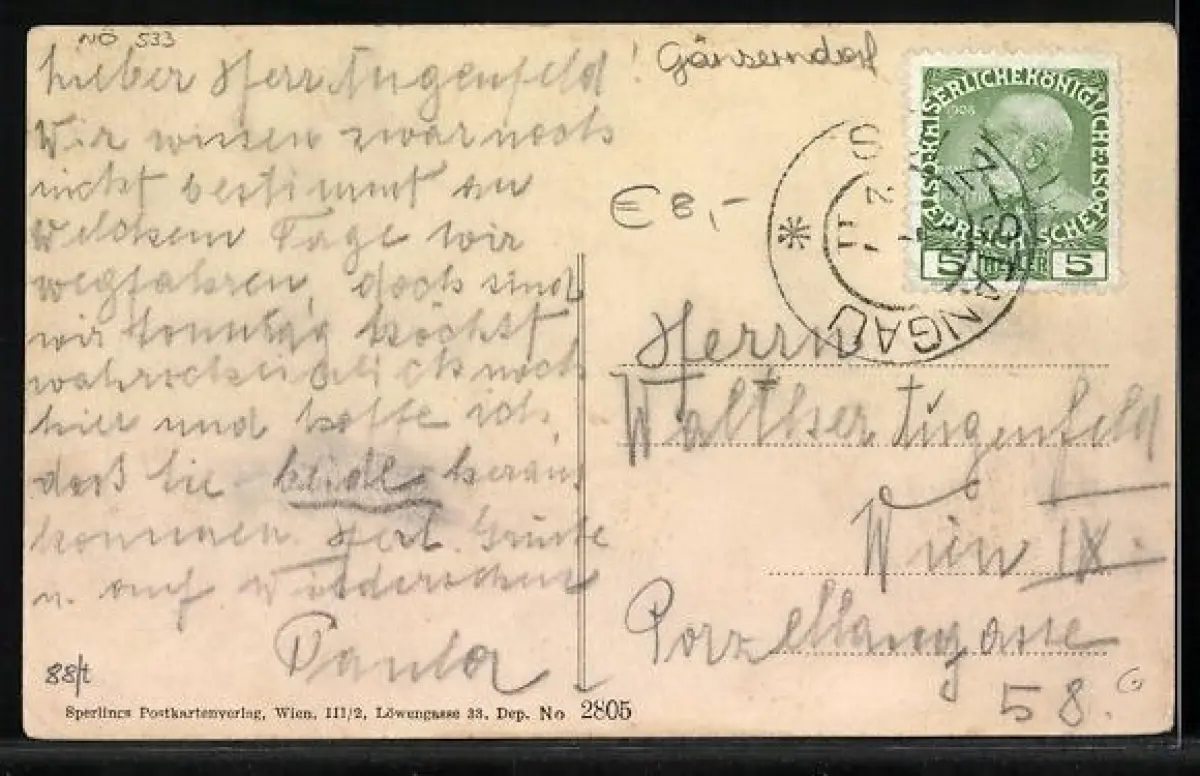 NÖ 533
Lieber Herr Jugenfeld!
Wir wissen zwar noch
nicht bestimmt an
Welchem Tage wir
wegfahren, doch sind
wir Sonntag höchst
wahrscheinlich noch
hier und hoffe ich,
daß Sie beide heraus
kommen. Herl. Grüße
u. auf Wiedersehen
Paula
88/t
Sperlings Postkartenverlag, Wien, III/2, Löwengasse 33. Dep. No 2805
Gänserndorf
KAISERLICHE KÖNIGLICHE
1908
POST
5 HELLER 5
€ 8,-
ANGAU
Herrn
Walther Jugenfeld
Wien IX.
Porzellangasse
58.